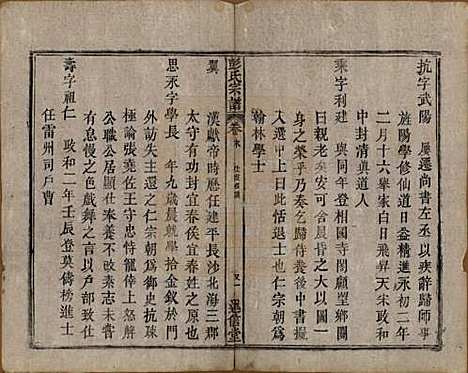 抗字武陽　屢遷尚書左丞以疾辭歸師事
旌陽學修仙道日益精進永初二年
二月十六舉家白日飛昇天宋政和
中封清眞道人
乘字利建　與同年登相國寺閣顧望鄉關
曰親老矣安可貪富貴之大以圖一
身之榮乎乃奏乞歸侍養後中書擬
入選中上曰此恬退士也仁宗朝爲
翰林學士
彭氏宗譜
卷首
又一
述信堂
翼
漢獻帝時歷任建平長沙北海三郡
太守有功封宜春侯宜春姓之原也
思永字學長　年九歲晨就學拾金釵於門
外訪失主還之仁宗朝爲御史抗疏
極論張堯佐王守忠恃寵僥倖上怒解
公職公居顯仕奉養不改秦志未嘗
有怠慢之色戲舞之言以戶部致仕
壽字祖仁　政和二年壬辰登莫儔榜進士
任雷州司戶曹